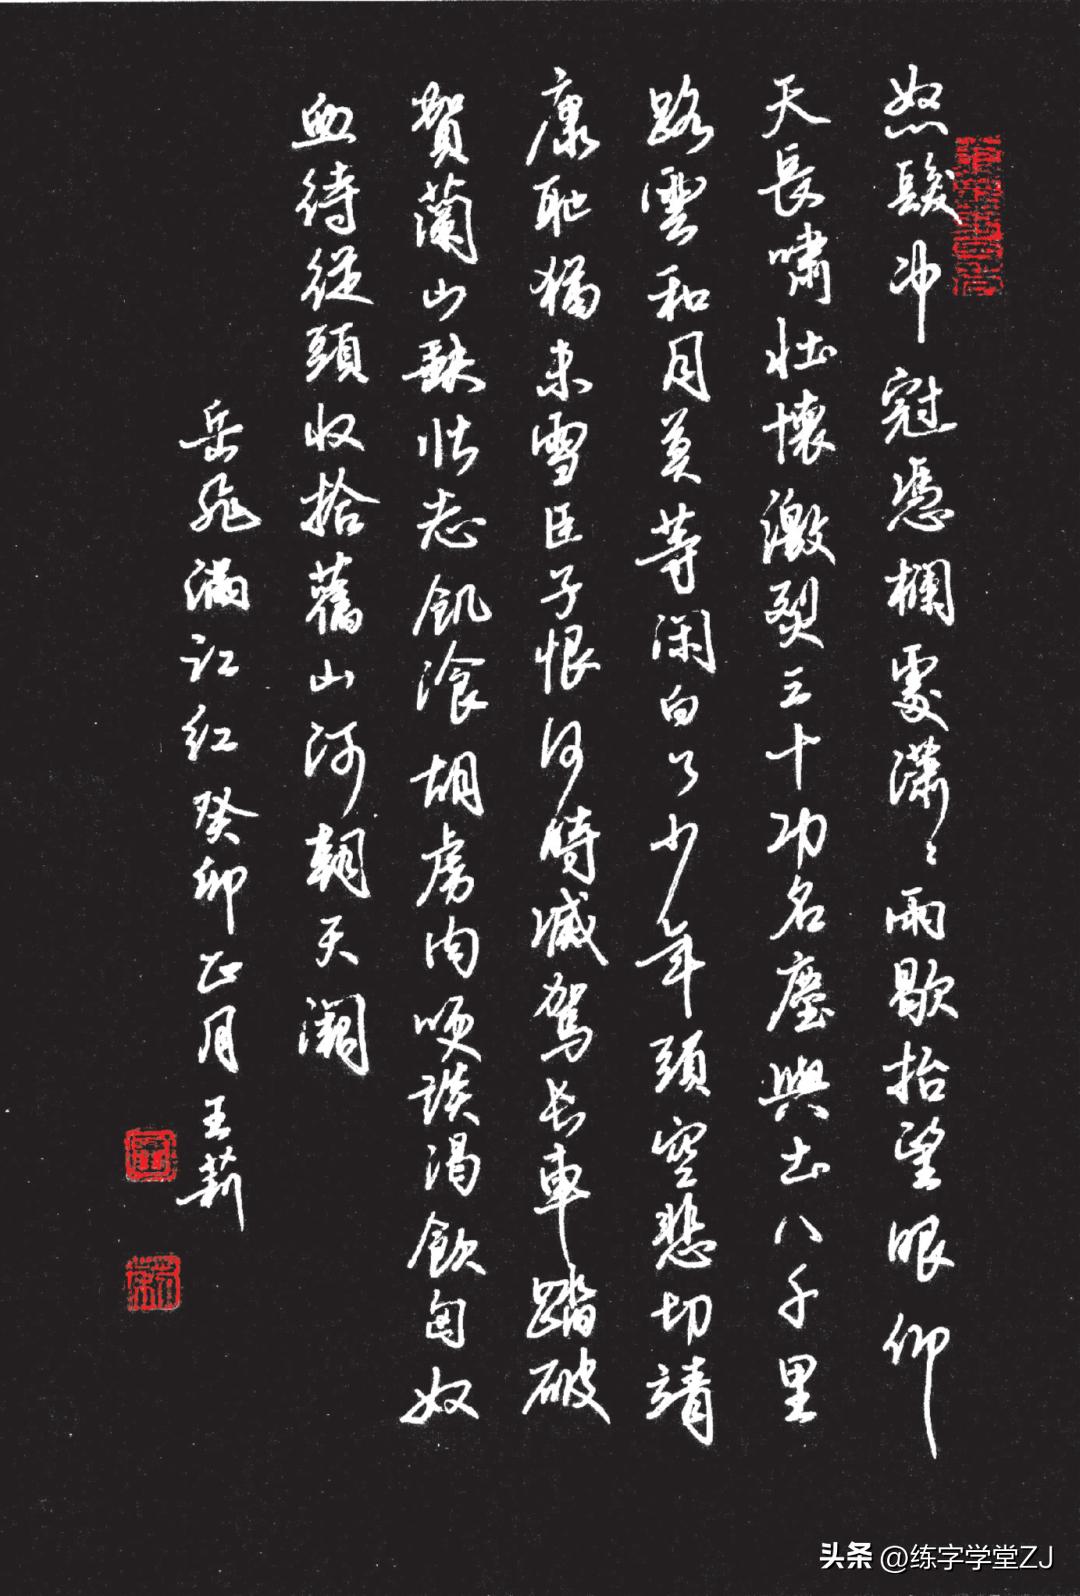 怒髮冲冠憑欄處瀟〻雨歇抬望眼仰
天長嘯壯懷激烈三十功名塵與土八千里
路雲和月莫等閑白了少年頭空悲切靖
康耻猶未雪臣子恨何時滅駕长車踏破
賀蘭山缺壯志飢湌胡虜肉咲談渴飲匈奴
血待從頭收拾舊山河朝天闕
岳飛滿江紅癸卯正月王莉
头条 @练字学堂ZJ